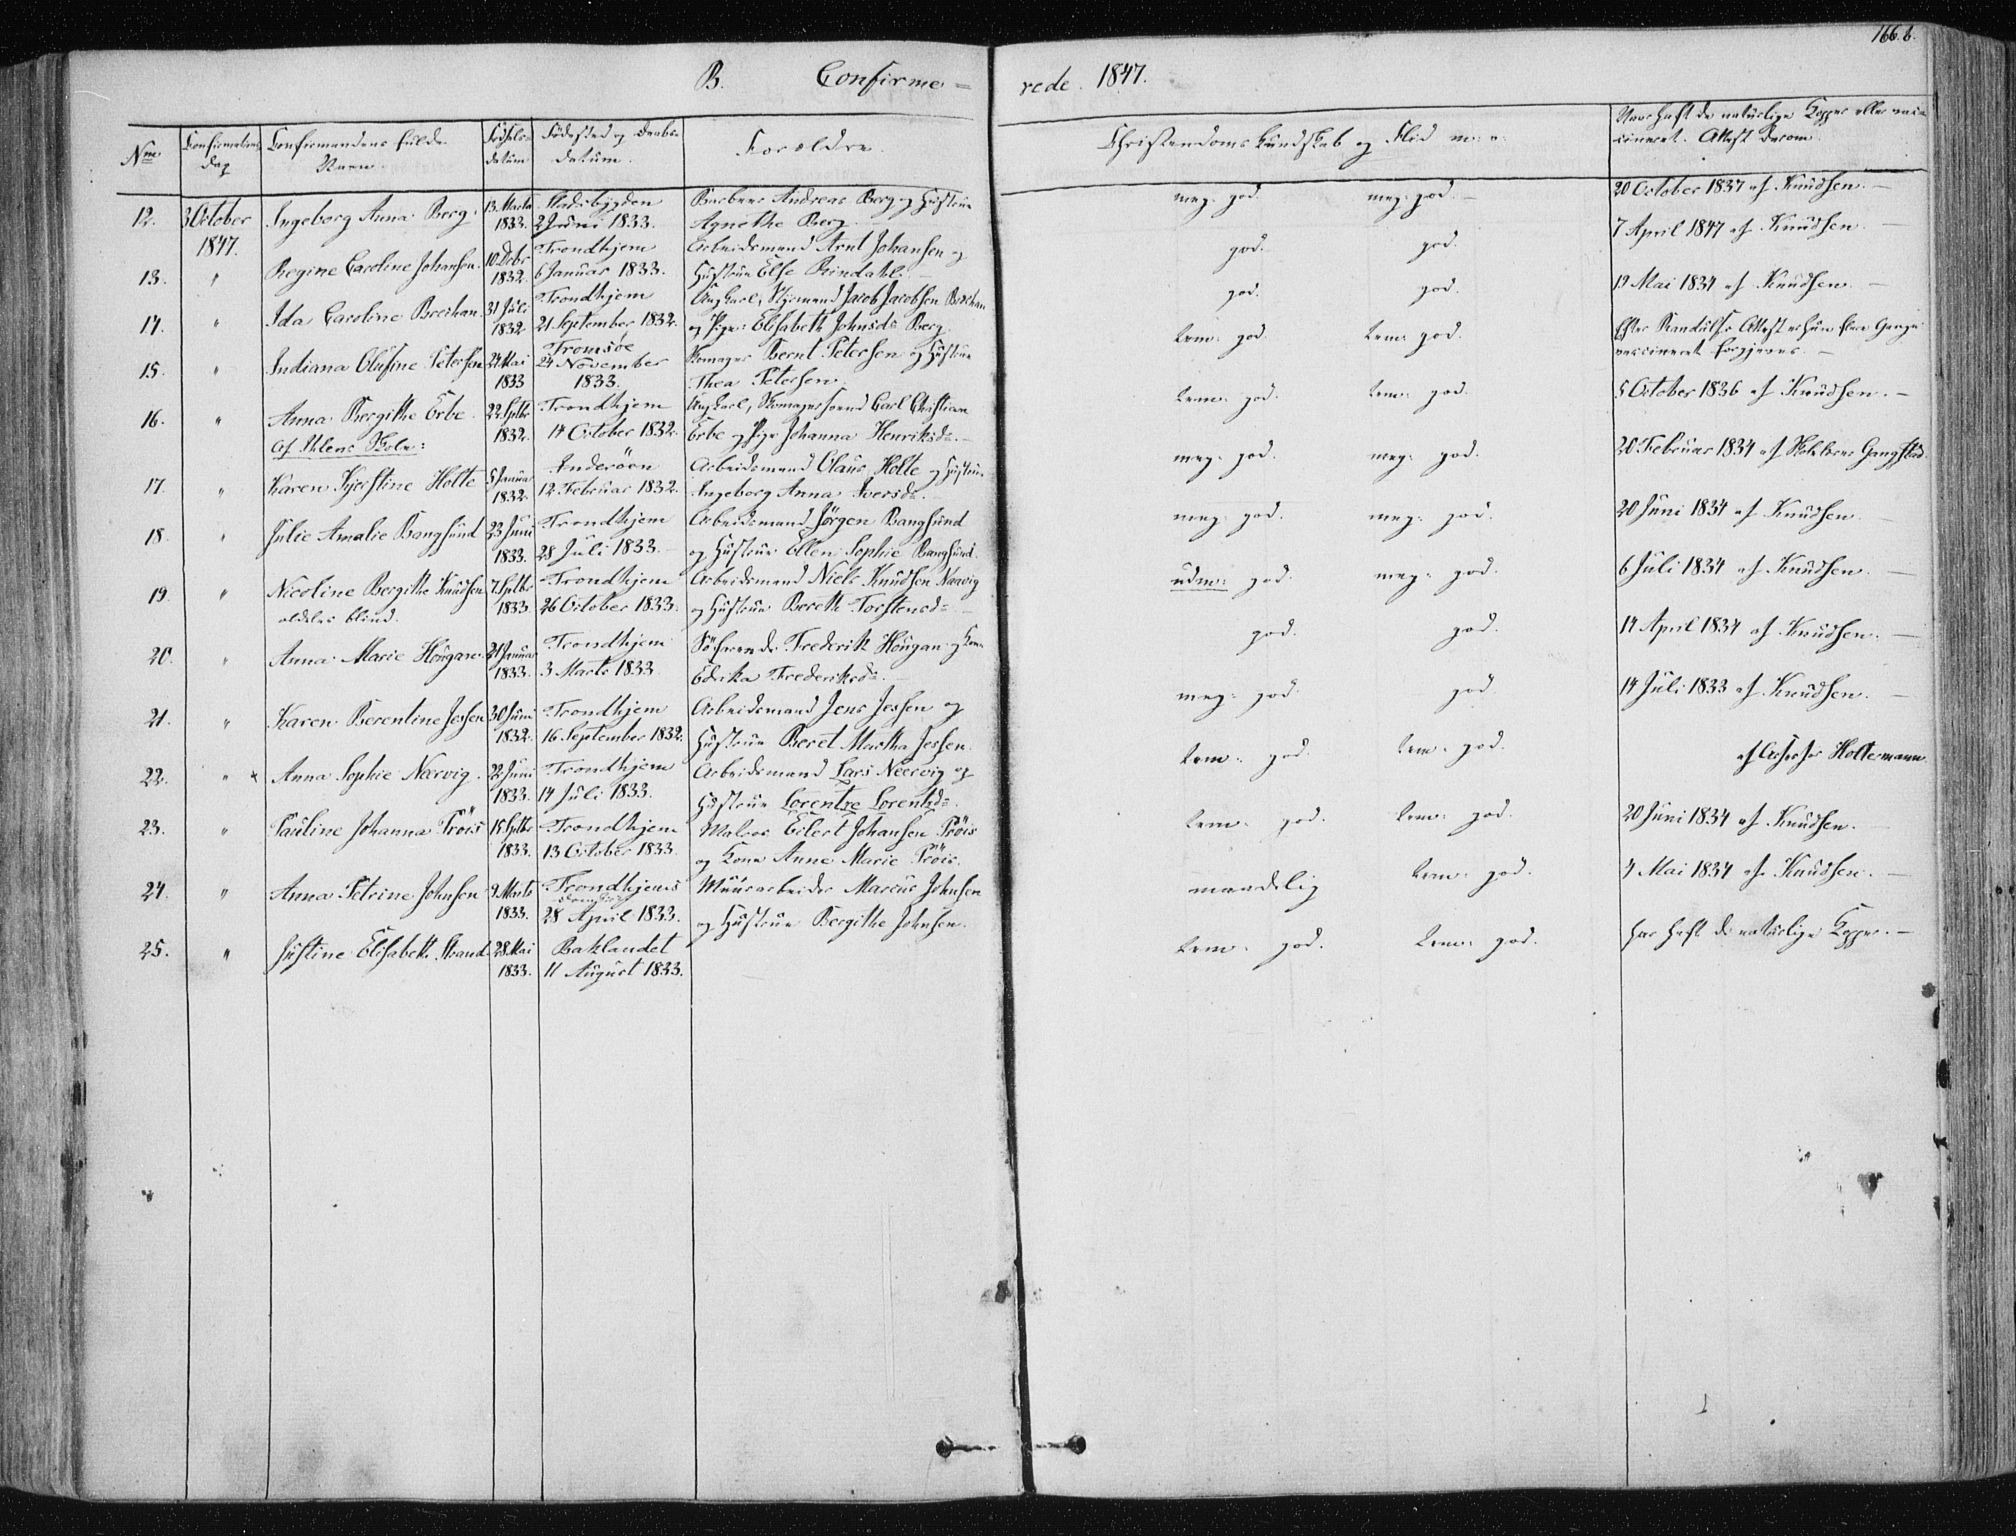 166.b.
B. Confirme=
rede. 1847.
Nro
Confirmations
Dag
Confirmandens fulde
Navn
Fødsels=
datum
Fødested og Daabs=
datum.
Forældre.
Christendoms Kundskab og Flid m: v:
Naar haft de naturlige Kopper eller vac=
cineret. Attest derom.
12. 3 October 1847. Ingeborg Anna Berg. 13 Marts 1833. Stadsbygden 2 Juni 1833. Andreas Berg og Hustrue
Agnethe Berg. meg: god. meg: god. 20 October 1837 af Knudsen.
13. " Regine Caroline Johansen. 10 Debr 1832. Trondhjem 6 Januar 1833. Arbeidsmand Arnt Johansen og
Hustrue Else Rindahl. god. god. 7 April 1847 af Knudsen.
14. " Ida Caroline Breihan 31 Juli 1832 Trondhjem 21 September 1832. Ungkarl, Styrmand Jacob Jacobsen Breihan
og Pige: Elisabeth Johnsd: Berg. god. god. 19 Mai 1834 af Knudsen.
15. " Indiana Olufine Petersen 24 Mai 1833 Tromsøe 24 November 1833. Skomager Bernt Petersen og Hustrue
Thea Petersen. tem: god. tem: god. Efter Attest er hun flere Gange
vaccineret forgjeves.
16. " Anna Bergithe Erbe. 22 Septbr 1832. Trondhjem 14 October 1832. Ungkarl, Skomagersvend Carl Christian
Erbe og Pige Johanna Henriksd:. tem: god. tem: god. 5 October 1836 af Knudsen.
Af Ihlens Skole:
17. " Karen Kjerstine Holte 5 Januar 1832. Inderöen 12 Februar 1832. Arbeidsmand Olaus Holte og Hustrue
Ingeborg Anna Iversd:. meg: god. meg: god. 20 Februar 1834 af Gangstad
18. " Julie Amalie Bangsund 23 Juni 1833. Trondhjem 28 Juli 1833. Arbeidsmand Jørgen Bangsund
og Hustrue Ellen Sophie Bangsund. meg: god. meg: god. 20 Juni 1834 af Knudsen.
19. " Nicoline Bergithe Knudsen 7 Septbr 1833. Trondhjem 26 October 1833. Arbeidsmand Niels Knudsen Nærvig
aldeles blind. og Hustrue Bereth Torstensd:. udm: god. meg: god. 6 Juli 1834 af Knudsen.
20. " Anna Marie Hougan. 21 Januar 1833. Trondhjem 3 Marts 1833. Söfarende Frederik Hougan og Kone
Edrika Frederiksd:. god. god. 14 April 1834 af Knudsen.
21. " Karen Berentine Jessen 30 Juni 1832. Trondhjem 16 September 1832. Arbeidsmand Jens Jessen og
Hustrue Beret Martha Jessen. meg: god. god 14 Juli 1833 af Knudsen.
22. " x Anna Sophie Nærvig. 22 Juni 1833. Trondhjem 14 Juli 1833. Arbeidsmand Lars Neervig og
Hustrue Lorentze Lorentzd:. tem: god. tem: god. af Holtemann
23. " Pauline Johanna Pröis 15 Septbr 1833. Trondhjem 13 October 1833. Eilert Johansen Pröis
og Kone Anne Marie Pröis. tem: god. tem: god. 20 Juni 1834 af Knudsen.
24. " Anna Petrine Johnsen 9 Marts 1833. Trondhjems 28 April 1833. Muurarbeider Marcus Johnsen
og Hustrue Bergithe Johnsen. maadelig tem: god. 4 Mai 1834 af Knudsen.
25. " Justine Elisabeth Strand 28 Mai 1833. Baklandet 11 August 1833. tem: god. tem: god. har haft de naturlige Kopper.